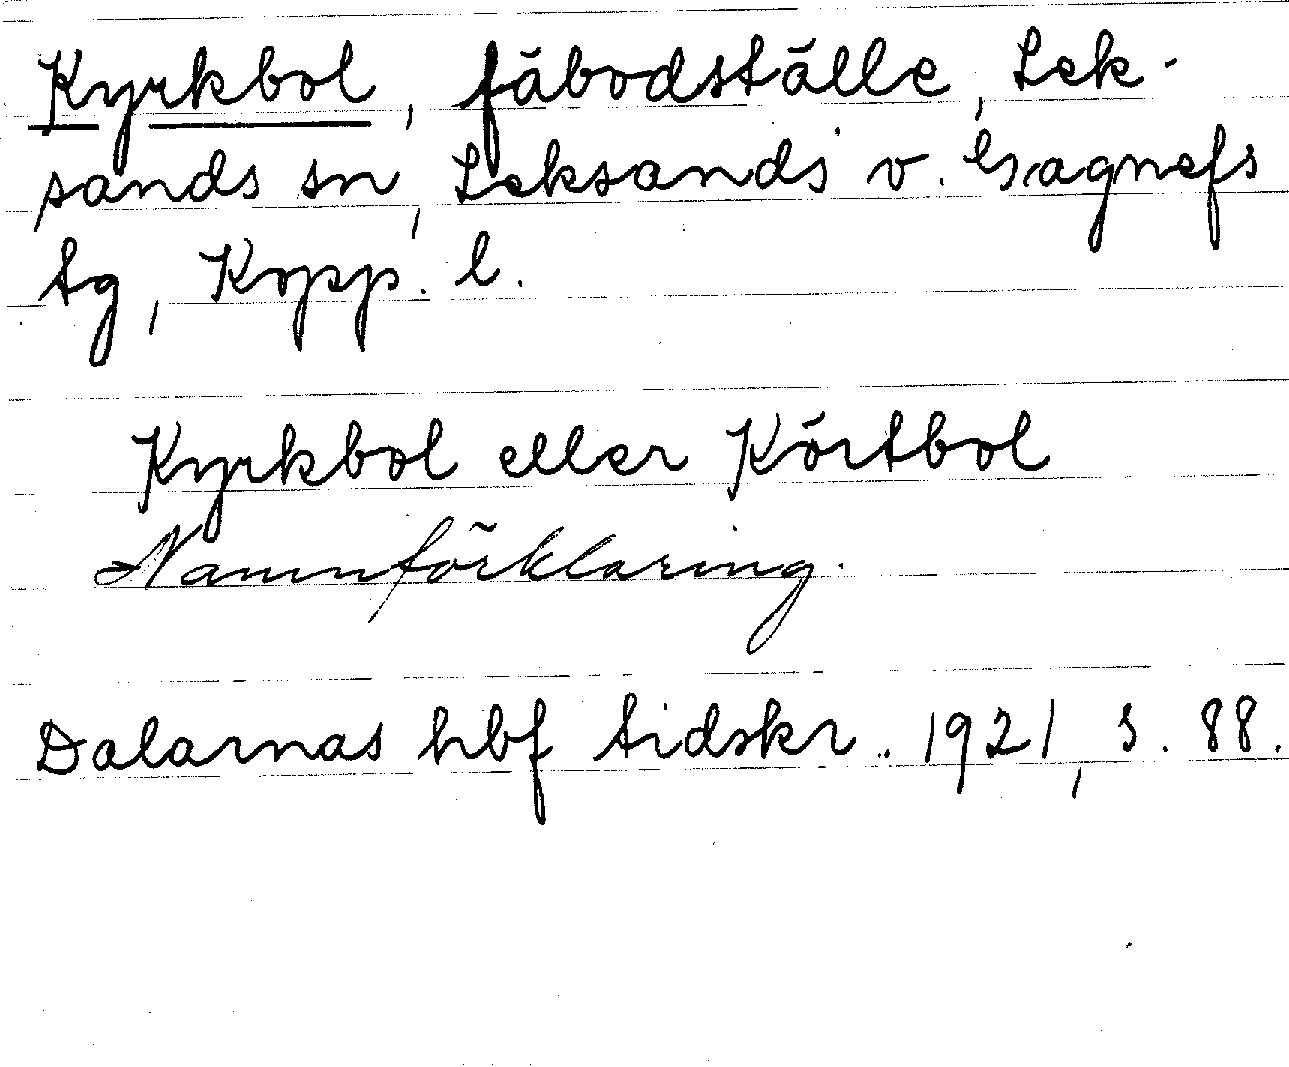 Kyrkbol, fäbodställe, Lek-
sands sn, Leksands v. Gagnefs
tg, Kopp. l.
Kyrkbol eller Körtbol
Namnförklaring.
Dalarnas hbf tidskr.. 1921, s. 88.